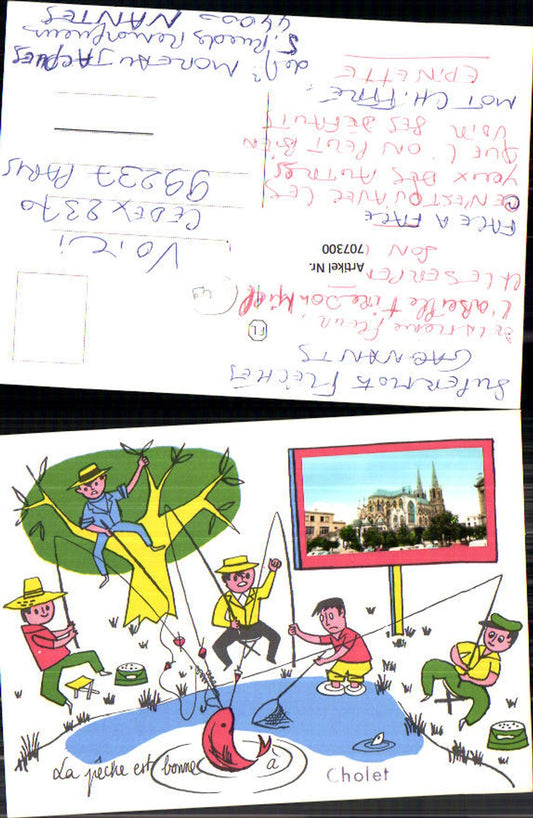 SUPERMOTS FLECHES
GAGNANTS
De la même fleur
L'abeille tire son miel
et le serpent
son
Artikel Nr.
707300
FACE A FACE
CE N'EST QU'AVEC LES
YEUX DES AUTRES
QUE L'ON PEUT BIEN
VOIR SES DEFAUTS
MOT CH. FFRE :
EPINETTE
FL
VOICI
CEDEX 2370
99237 PARIS
de M. MOREAU JACQUES
5, rue des Renards
44000 NANTES
La pêche est bonne à Cholet